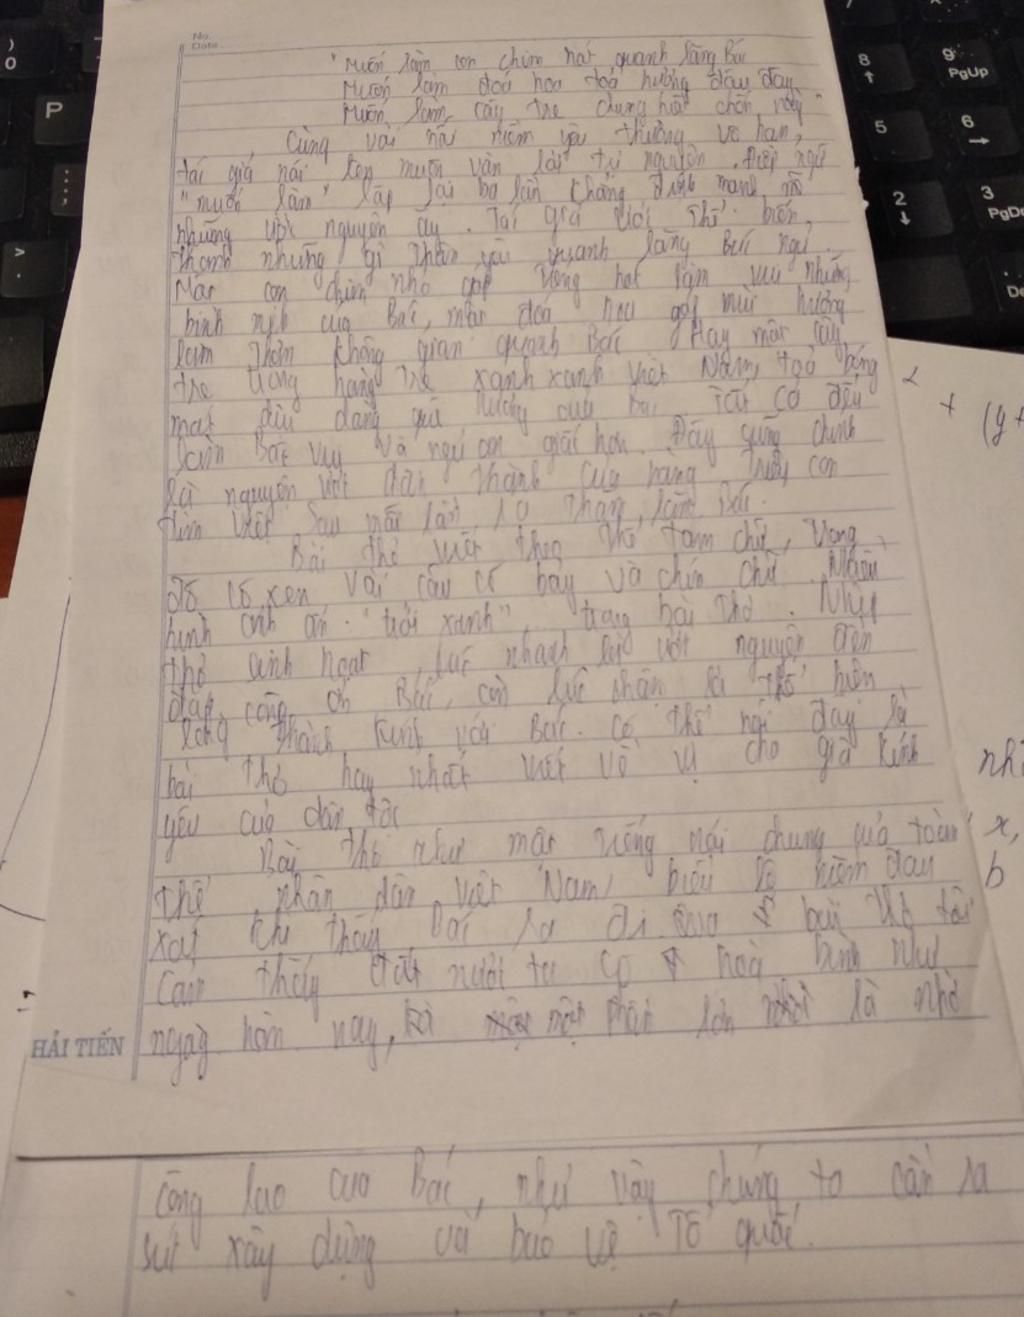 No.
Date
"Muốn làm con chim hót quanh lăng Bác
Muốn làm đoá hoa toả hương đâu đây
Muốn làm cây tre trung hiếu chốn này"
Cùng với nỗi niềm yêu thương vô hạn,
tác giả nói lên muôn vàn lời tự nguyện. Điệp ngữ
"muốn làm" lặp lại ba lần khẳng định mạnh mẽ
những ước nguyện ấy. Tác giả ước thế biến
thành những gì thân yêu quanh lăng Bác ngủ.
Một con chim nhỏ góp tiếng hót làm vui những
bình minh của Bác, một đoá hoa góp mùi hương
làm thơm không gian quanh Bác Hay một cây
tre trong hàng tre xanh xanh Việt Nam, toả bóng
mát dịu dàng quê hương của Bác Tất cả đều
làm Bác vui và ngủ con giấc hơn. Đây cũng chính
là nguyện ước chân thành của hàng triệu con
tim Việt sau mỗi lần ra thăm lăng Bác.
Bài thơ viết theo thể tám chữ, trong
đó có xen vài câu có bảy và chín chữ. Nhiều
hình ảnh ẩn "trời xanh", trong bài thơ. Nhịp
thơ sinh hoạt, lúc nhanh là ước nguyện đền
đáp công ơn Bác, còn lúc chậm là thể hiện
lòng thành kính với Bác. Có thể nói đây là
bài thơ hay nhất viết về vị cha già kính
yêu của dân tộc
Bài thơ như một tiếng nói chung của toàn
thể nhân dân Việt Nam, biểu lộ niềm đau
xót khi thấy Bác ra đi. Qua bài thơ tôi
cảm thấy đất nước ta có hoà bình như
ngày hôm nay, một phần lớn là nhờ
HẢI TIẾN
công lao của Bác, như vậy chúng ta cần ra
sức xây dựng và bảo vệ Tổ quốc.
8
9
PgUp
P
5
6
2
3
PgDn
0
+ (y+
nh
x,
b